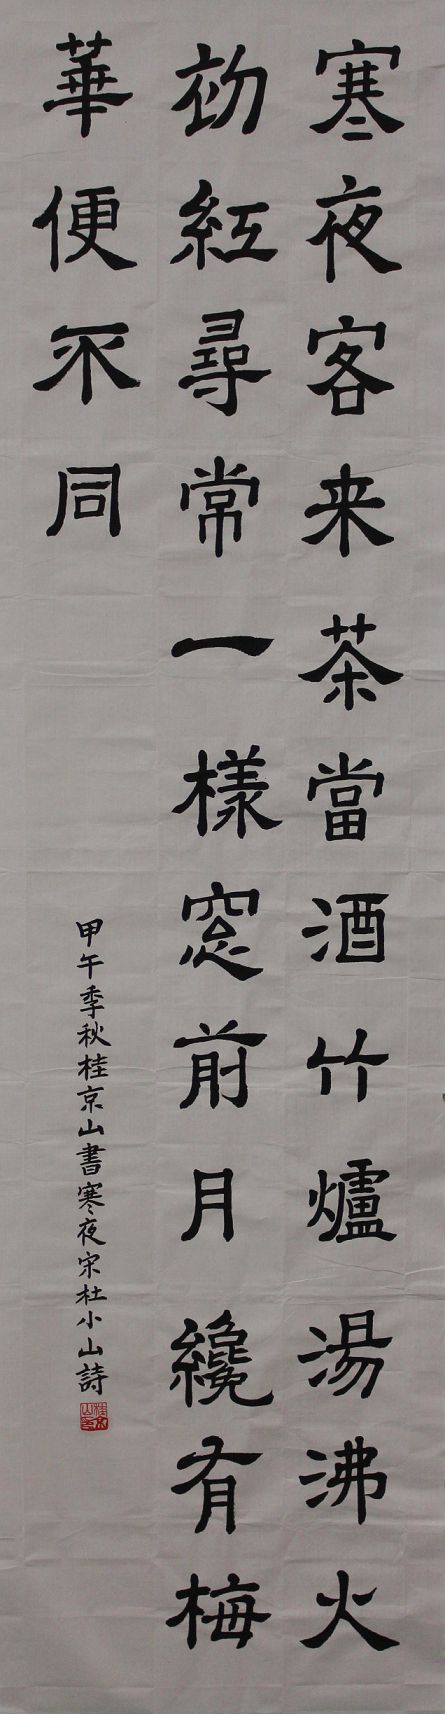 寒夜客来茶當酒竹爐湯沸火
初紅尋常一樣窓前月纔有梅
華便不同
甲午季秋桂京山書寒夜宋杜小山詩